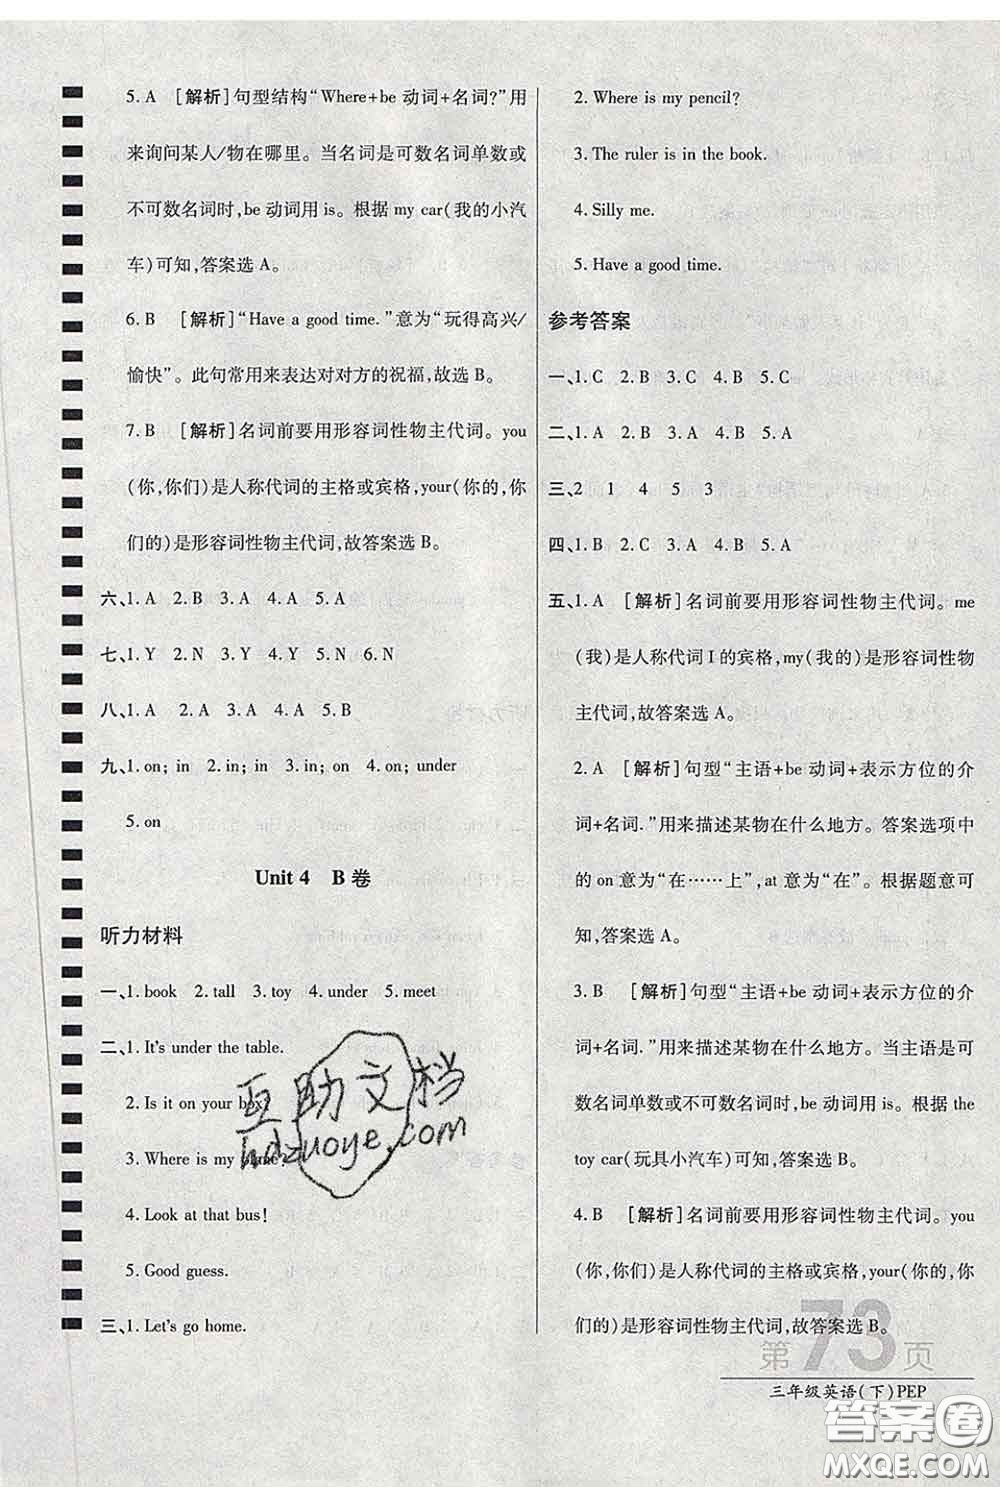 5. A [解析]句型结构“Where+be 动词+名词?”用
来询问某人/物在哪里。当名词是可数名词单数或
不可数名词时,be 动词用 is。根据 my car(我的小汽
车)可知,答案选A。
6. B [解析]“Have a good time.”意为“玩得高兴/
愉快”。此句常用来表达对对方的祝福,故选 B。
7. B [解析]名词前要用形容词性物主代词。you
(你,你们)是人称代词的主格或宾格,your(你的,你
们的)是形容词性物主代词,故答案选 B。
六、1. A 2. B 3. A 4. A 5. A
七、1. Y 2. N 3. Y 4. Y 5. N 6. N
八、1. A 2. A 3. A 4. A 5. B
九、1. on; in 2. in; in 3. in; on 4. on; under
5. on
Unit 4 B 卷
听力材料
一、1. book 2. tall 3. toy 4. under 5. meet
二、1. It's under the table.
2. Is it on your box?
3. Where is my
4. Look at that bus!
5. Good guess.
三、1. Let's go home.
2. Where is my pencil?
3. The ruler is in the book.
4. Silly me.
5. Have a good time.
参考答案
一、1. C 2. B 3. C 4. B 5. C
二、1. A 2. B 3. A 4. B 5. A
三、2 1 4 5 3
四、1. B 2. C 3. A 4. A 5. A
五、1. A [解析]名词前要用形容词性物主代词。me
(我)是人称代词 I 的宾格,my(我的)是形容词性物
主代词,故答案选 A。
2. A [解析]句型“主语+be 动词+表示方位的介
词+名词.”用来描述某物在什么地方。答案选项中
的 on 意为“在……上”,at 意为“在”。根据题意可
知,答案选 A。
3. B [解析]句型“主语+be 动词+表示方位的介
词+名词.”用来描述某物在什么地方。当主语是可
数名词单数或不可数名词时,be 动词用 is。根据 the
toy car(玩具小汽车)可知,答案选 B。
4. B [解析]名词前要用形容词性物主代词。you
(你,你们)是人称代词的主格或宾格,your(你的,你
们的)是形容词性物主代词,故答案选 B。
第73页
三年级英语(下)PEP
互助文档
hdzuoye.com
答案卷
MXQE.COM